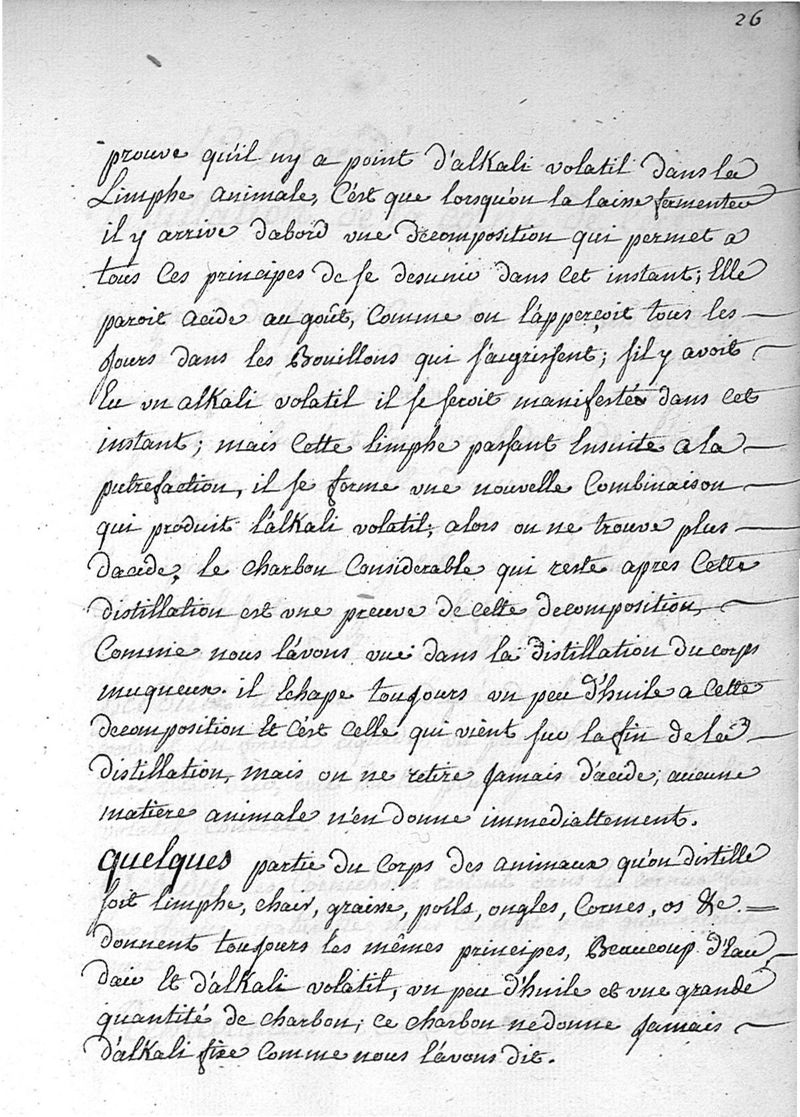 26
prouve qu'il ny a point d'alKali volatil dans la
Limphe animale, C'est que lorsqu'on la laisse fermenter
il y arrive dabord une decomposition qui permet a
tous ces principes de se desunir dans cet instant; Elle
paroit acide au goût, Comme on l'apperçoit tous les
jours dans les Bouillons qui s'aigrissent; s'il y avoit
Eu un alKali volatil il se seroit manifesté dans cet
instant; mais Cette limphe passant Ensuite a la
putrefaction, il se forme une nouvelle Combinaison
qui produit l'alKali volatil; alors on ne trouve plus
dacide, le charbon Considerable qui reste apres Cette
distillation est une preuve de cette decomposition,
Comme nous l'avons vue dans la distillation du corps
muqueux. il Echape toujours un peu d'huile a Cette
decomposition Et c'est Celle qui vient sur la fin de la
distillation, mais on ne retire jamais d'acide; aucune
matière animale n'en donne immediattement.
quelques partie du Corps des animaux qu'on distille
soit limphe, chair, graisse, poils, ongles, Cornes, os &c.
donnent toujours les mêmes principes, Beaucoup d'Eau,
dair Et d'alKali volatil, un peu d'huile et une grande
quantité de charbon; ce charbon ne donne jamais
d'alKali fixe Comme nous l'avons dit.